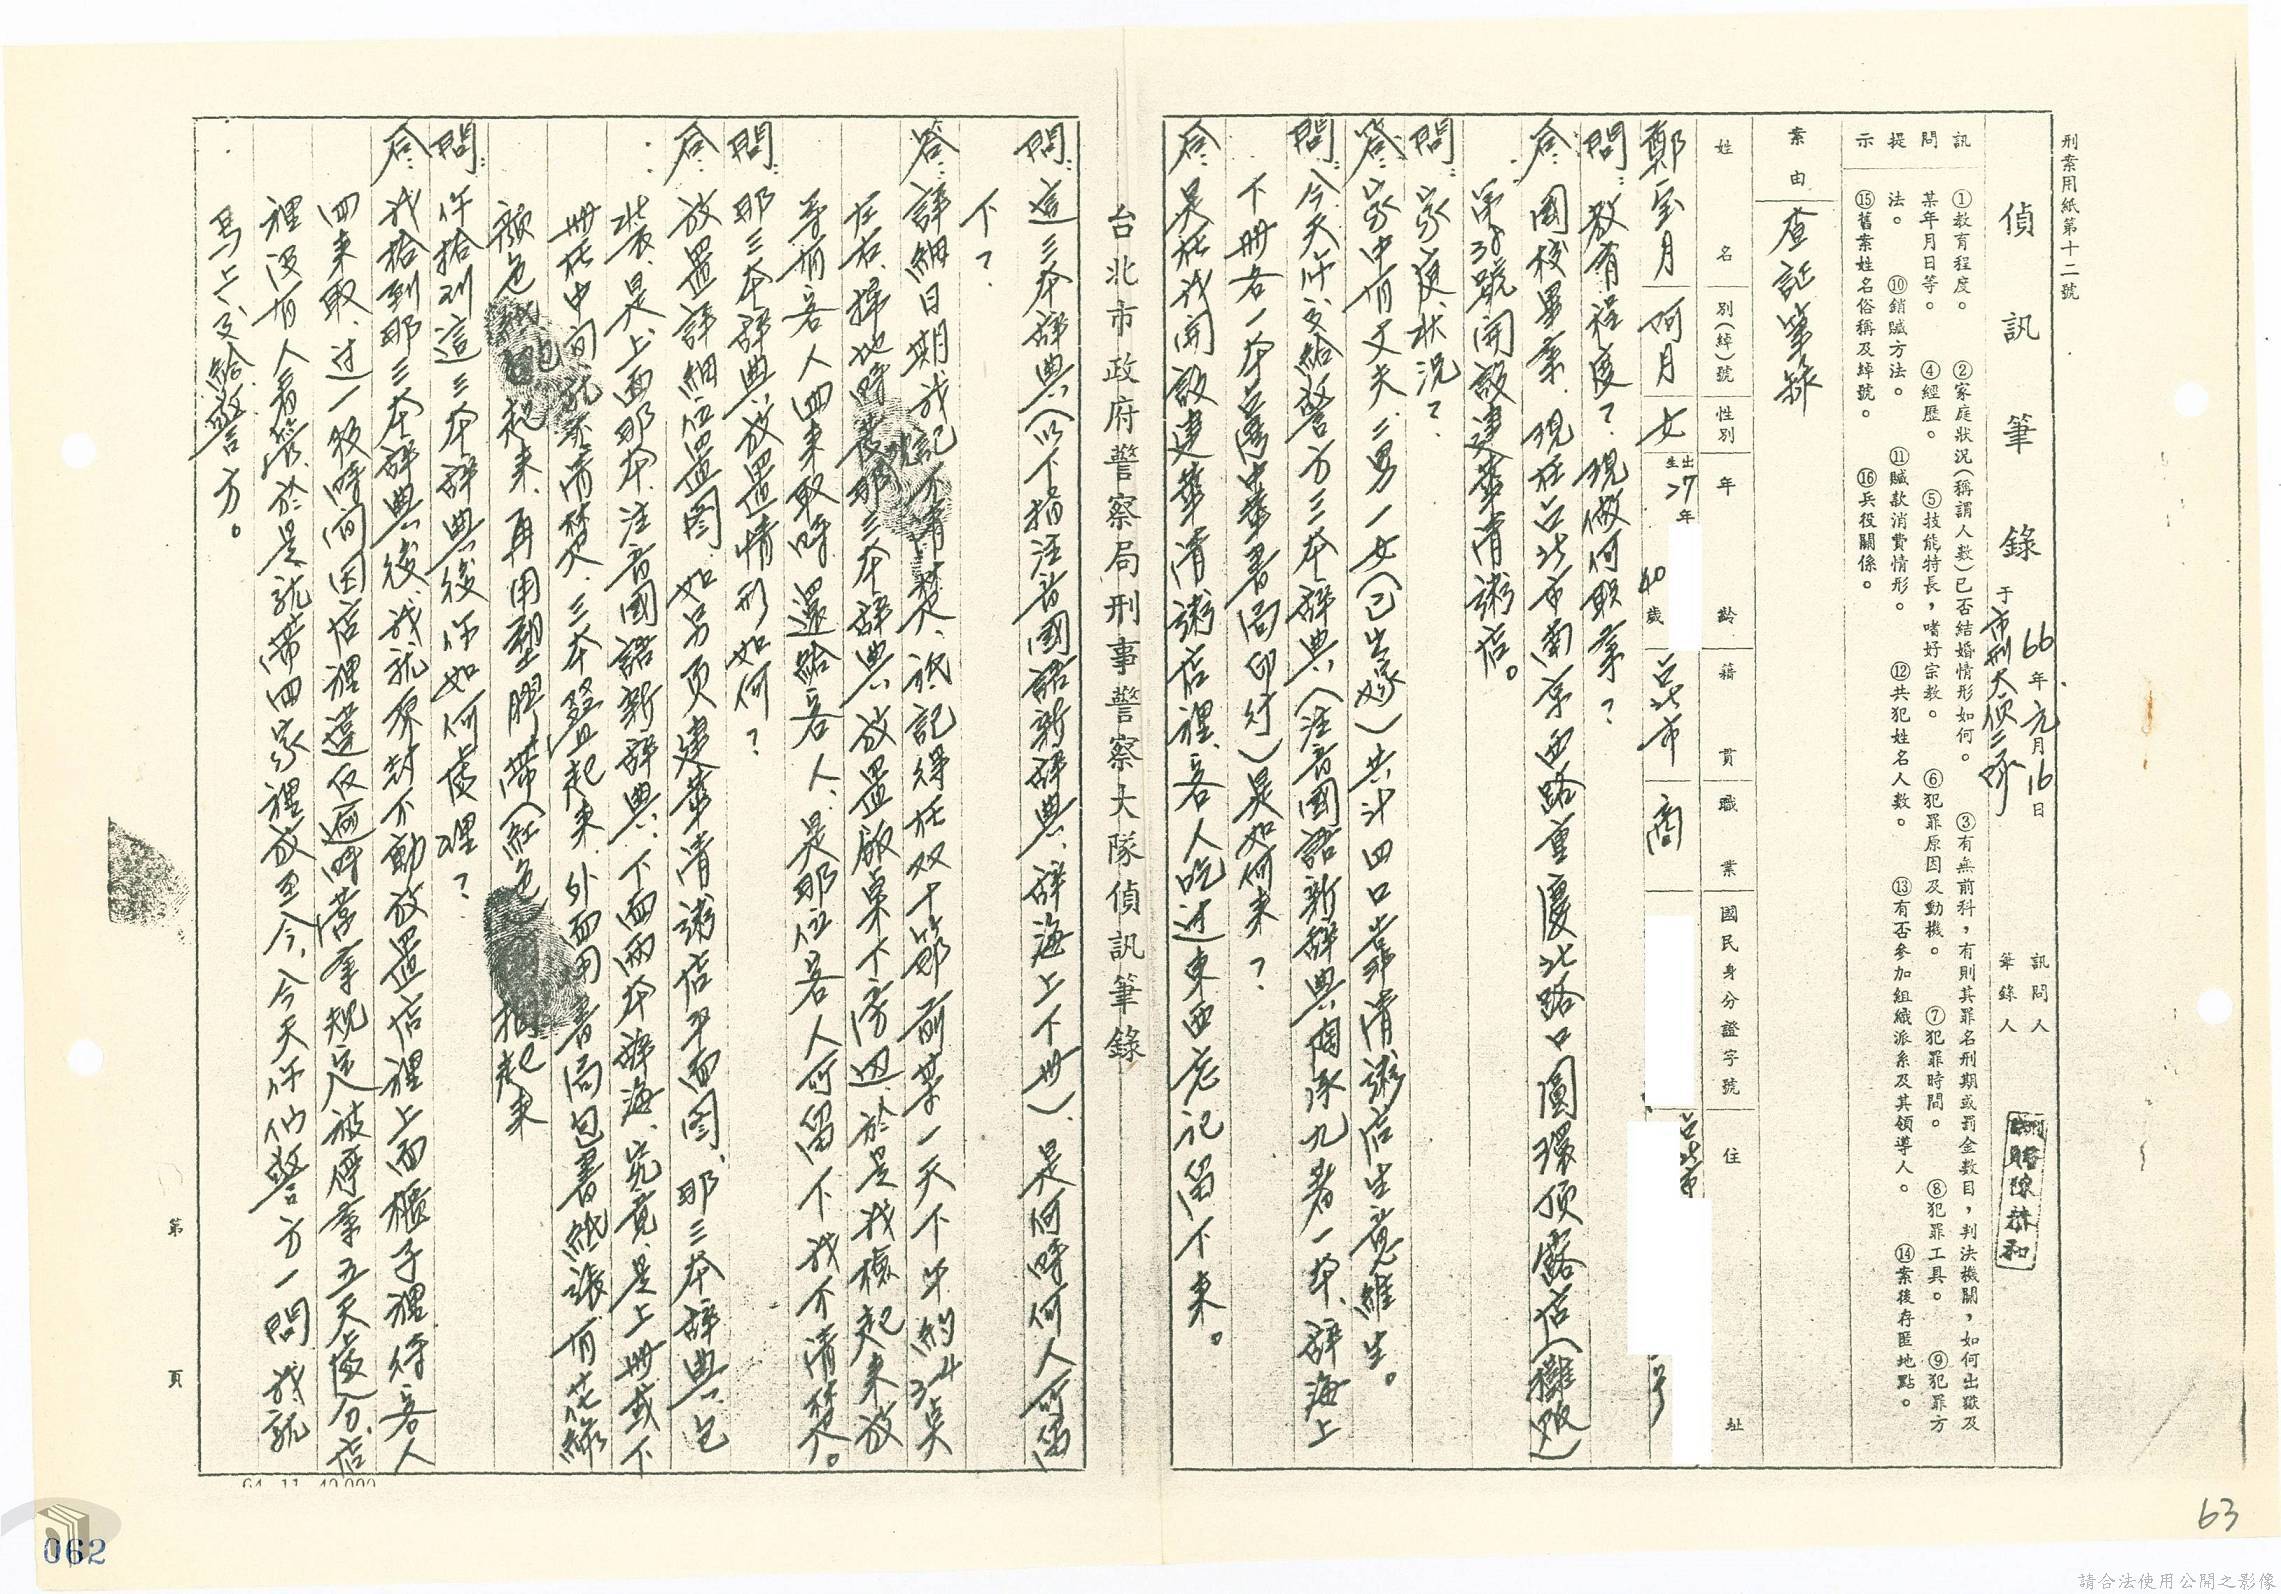 刑案用紙第十二號
偵訊筆錄
于市刑大偵二隊
66年元月16日
訊問人
筆錄人
訊問提示
①教育程度。 ②家庭狀況(稱謂人數)已否結婚情形如何。 ③有無前科,有則其罪名刑期或罰金數目,判決機關,如何出獄及
某年月日等。 ④經歷。 ⑤技能特長,嗜好宗教。 ⑥犯罪原因及動機。 ⑦犯罪時間。 ⑧犯罪工具。 ⑨犯罪方
法。 ⑩銷贓方法。 ⑪贓款消費情形。 ⑫共犯姓名人數。 ⑬有否參加組織派系及其領導人。 ⑭案後存匿地點。
⑮舊案姓名俗稱及綽號。 ⑯兵役關係。
案由 查証筆錄
姓名 別(綽)號 性別 年齡 籍貫 職業 國民身分證字號 住址
鄭宝月 阿月 女 出生27年 40歲 台北市 商 台北市 号
問:教育程度?現做何职業?
答:國校畢業.現在台北市南京西路重慶北路口圓環頂露店(攤販)
第38號開設建華清粥店。
問:家庭狀況?
答:家中有丈夫、二男一女(已出嫁)共計四口靠清粥店生意維生。
問:今天你交給警方三本辞典(注音國語新辞典陶承九著一本、辞海上
下册各一本台灣中華書局印行)是如何來?
答:是在我開設建華清粥店裡、客人吃过東西忘记留下來。
台北市政府警察局刑事警察大隊偵訊筆錄
問:這三本辞典(以下指注音國語新辞典、辞海上下册)、是何時何人所留
下?
答:詳細日期我記不清楚、祇記得在双十節前某一天下午約3.4点
左右、掃地時發現那三本辞典放置飯桌下旁边、於是我檢起来放
等有客人回来取時還給客人、是那位客人所留下我不清楚。
問:那三本辞典放置情形如何?
答:放置詳細位置图如另頁建華清粥店平面图、那三本辞典包
裝是上面那本注音國語新辞典、下面兩本辞海、究竟是上册或下
册在中间就不清楚、三本叠起来外面用書局包書紙張有花綠
颜色紙包起来、再用塑膠帶(紅色)捆起来
問:你拾到這三本辞典後你如何處理?
答:我拾到那三本辞典後我就原封不動放置店裡上面櫃子裡待客人
回来取、过一段時间因店裡違反逾時营業規定、被停業五天處分、店
裡沒有人看管於是就帶回家裡放至今、今天你们警方一問我就
馬上交給警方。
第 頁
062
63
請合法使用公開之影像